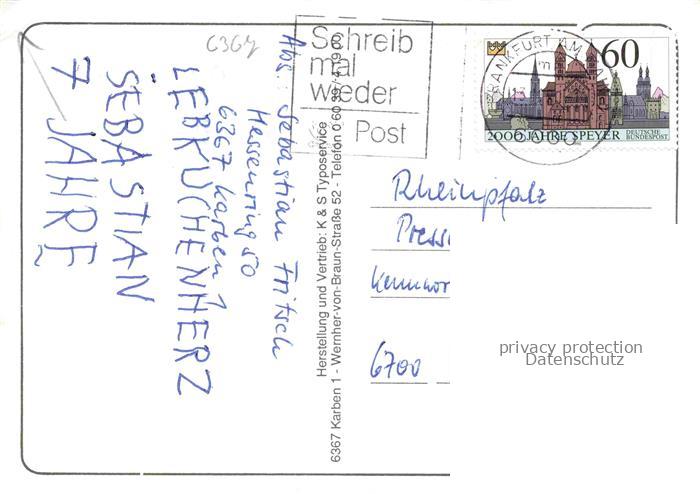 LEBKUCHENHERZ
SEBASTIAN
7 JAHRE
Abs.: Sebastian Fritsch
Hessenring 50
6367 Karben 1
Herstellung und Vertrieb: K & S Typoservice
6367 Karben 1 - Wernher-von-Braun-Straße 52 - Telefon 0 60 39 /
6367
Schreib
mal
wieder
Post
FRANKFURT AM MAIN
60
2000 JAHRE SPEYER
DEUTSCHE
BUNDESPOST
Rheinpfalz
Press
Kennwor
6700
privacy protection
Datenschutz